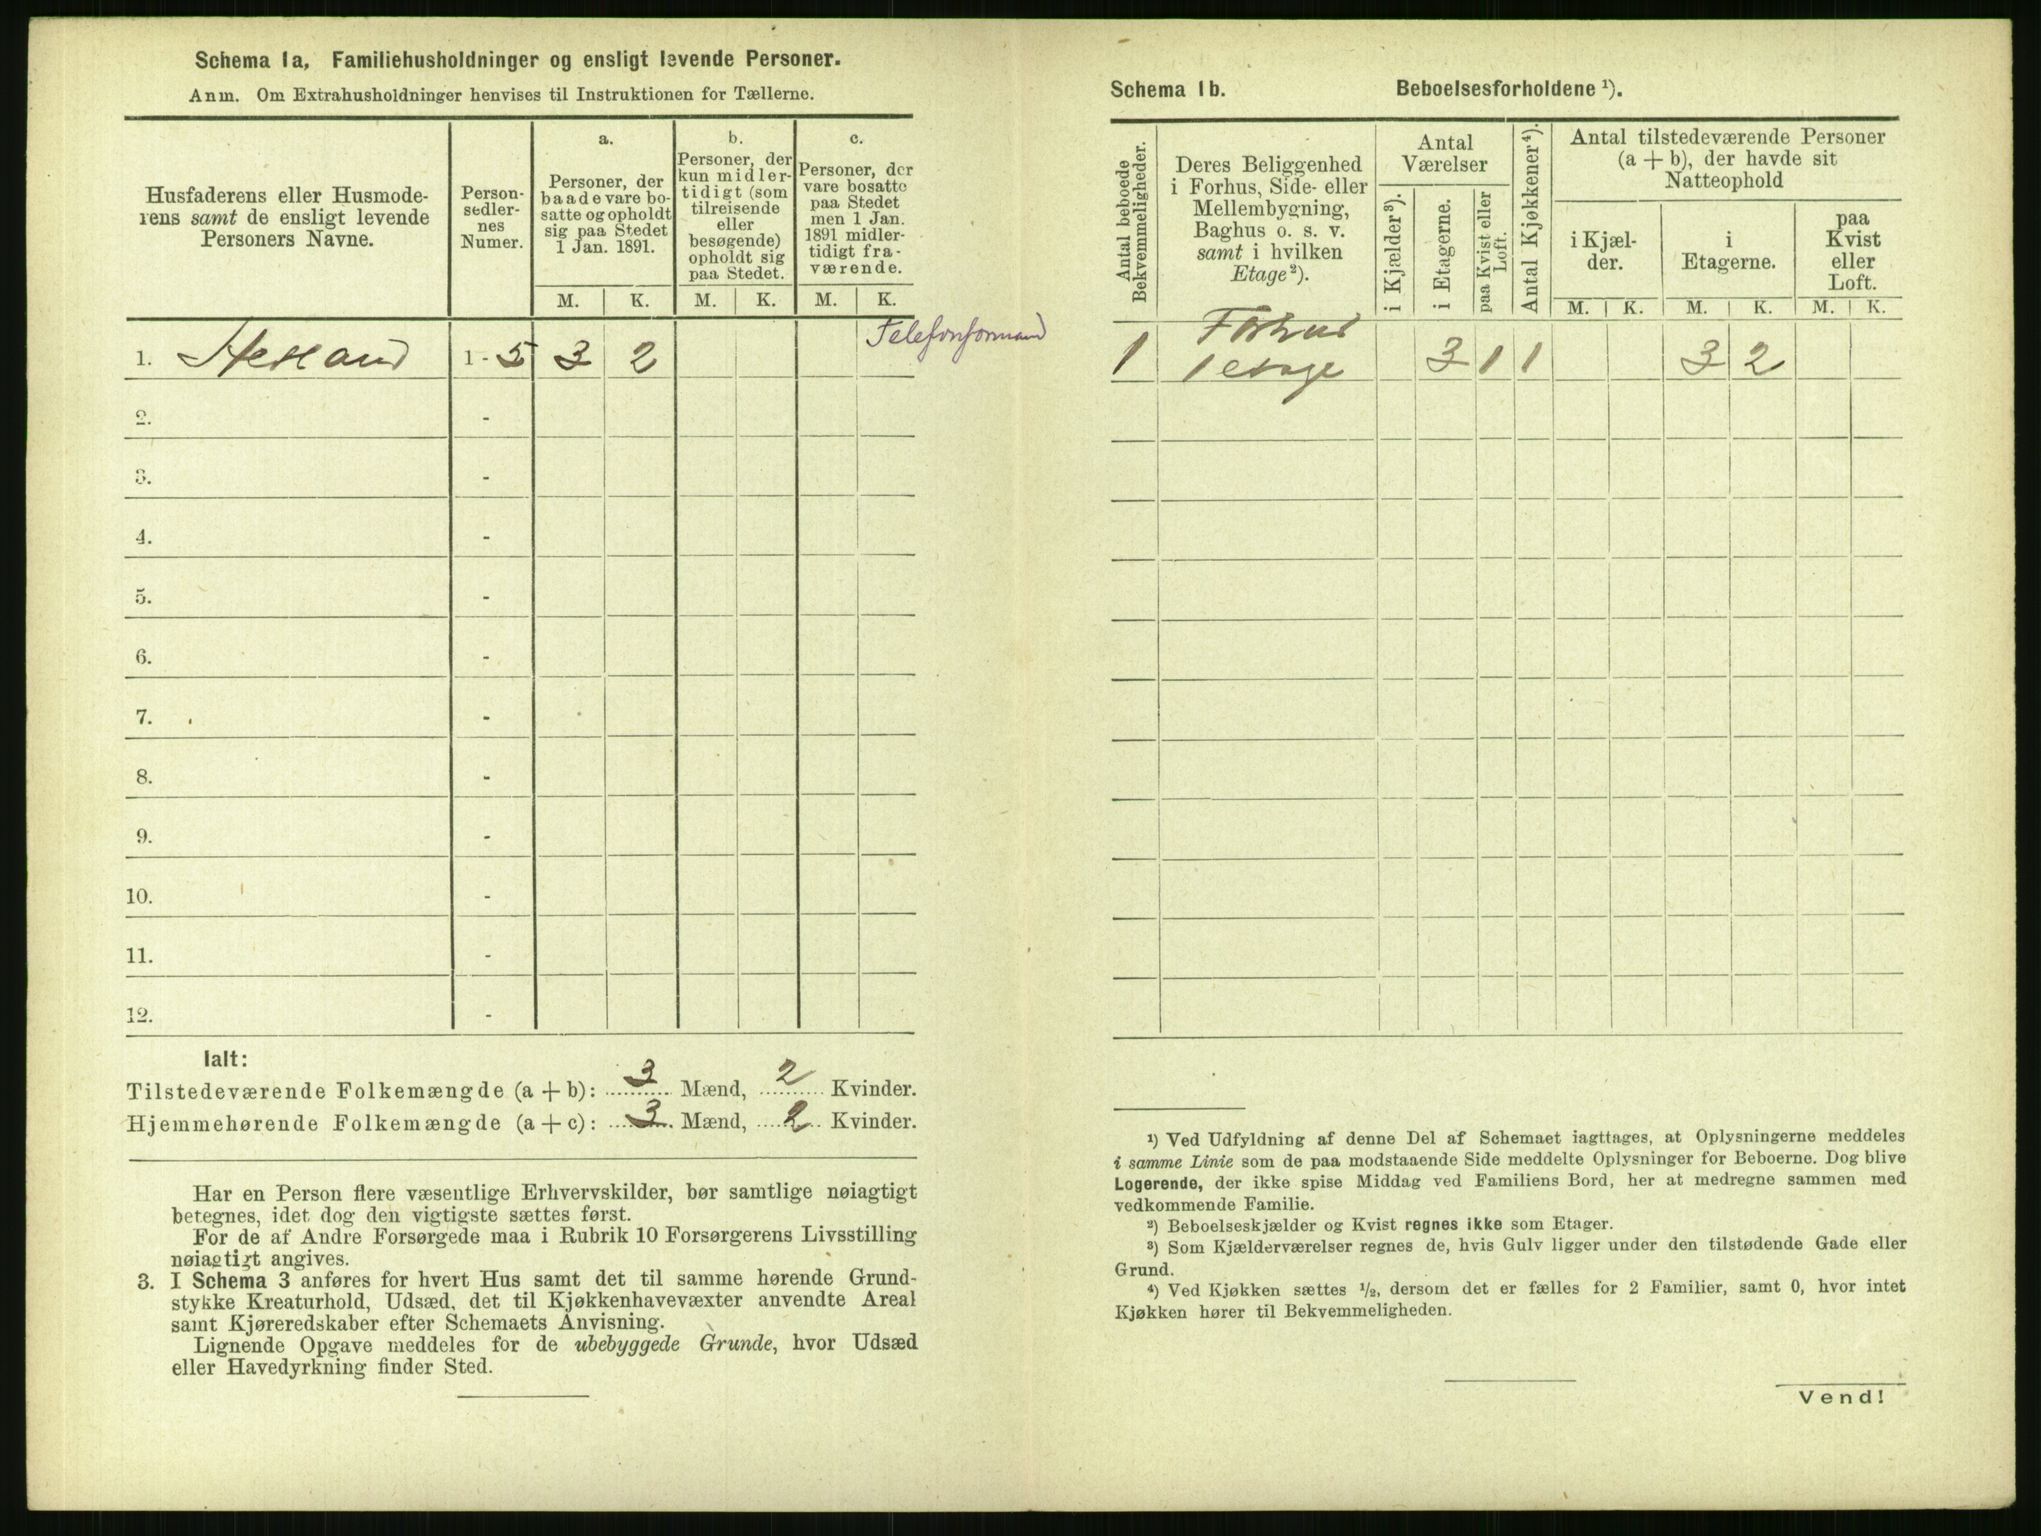 Schema 1a, Familiehusholdninger og ensligt levende Personer.
Anm. Om Extrahusholdninger henvises til Instruktionen for Tællerne.
Husfaderens eller Husmode-
rens samt de ensligt levende
Personers Navne.
Person-
sedler-
nes
Numer.
a.
Personer, der
baade vare bo-
satte og opholdt
sig paa Stedet
1 Jan. 1891.
b.
Personer, der
kun midler-
tidigt (som
tilreisende
eller
besøgende)
opholdt sig
paa Stedet.
c.
Personer, der
vare bosatte
paa Stedet
men 1 Jan.
1891 midler-
tidigt fra-
værende.
M. K. M. K. M. K.
1. 1 - 5 3 2 Telefonformand
2. -
3. -
4. -
5. -
6. -
7. -
8. -
9. -
10. -
11. -
12. -
Ialt:
Tilstedeværende Folkemængde (a + b): 3 Mænd, 2 Kvinder.
Hjemmehørende Folkemængde (a + c): 3 Mænd, 2 Kvinder.
Har en Person flere væsentlige Erhvervskilder, bør samtlige nøiagtigt
betegnes, idet dog den vigtigste sættes først.
For de af Andre Forsørgede maa i Rubrik 10 Forsørgerens Livsstilling
nøiagtigt angives.
3. I Schema 3 anføres for hvert Hus samt det til samme hørende Grund-
stykke Kreaturhold, Udsæd, det til Kjøkkenhavevæxter anvendte Areal
samt Kjøreredskaber efter Schemaets Anvisning.
Lignende Opgave meddeles for de ubebyggede Grunde, hvor Udsæd
eller Havedyrkning finder Sted.
Schema 1b. Beboelsesforholdene ¹).
Antal beboede
Bekvemmeligheder.
Deres Beliggenhed
i Forhus, Side- eller
Mellembygning,
Baghus o. s. v.
samt i hvilken
Etage ²).
Antal
Værelser
i Kjælder ³).
i Etagerne.
paa Kvist eller
Loft.
Antal Kjøkkener ⁴).
Antal tilstedeværende Personer
(a + b), der havde sit
Natteophold
i Kjæl-
der.
i
Etagerne.
paa
Kvist
eller
Loft.
M. K. M. K. M. K.
Forhus
1 1 etage 3 1 1 3 2
¹) Ved Udfyldning af denne Del af Schemaet iagttages, at Oplysningerne meddeles
i samme Linie som de paa modstaaende Side meddelte Oplysninger for Beboerne. Dog blive
Logerende, der ikke spise Middag ved Familiens Bord, her at medregne sammen med
vedkommende Familie.
²) Beboelseskjælder og Kvist regnes ikke som Etager.
³) Som Kjælderværelser regnes de, hvis Gulv ligger under den tilstødende Gade eller
Grund.
⁴) Ved Kjøkken sættes ½, dersom det er fælles for 2 Familier, samt 0, hvor intet
Kjøkken hører til Bekvemmeligheden.
Vend!